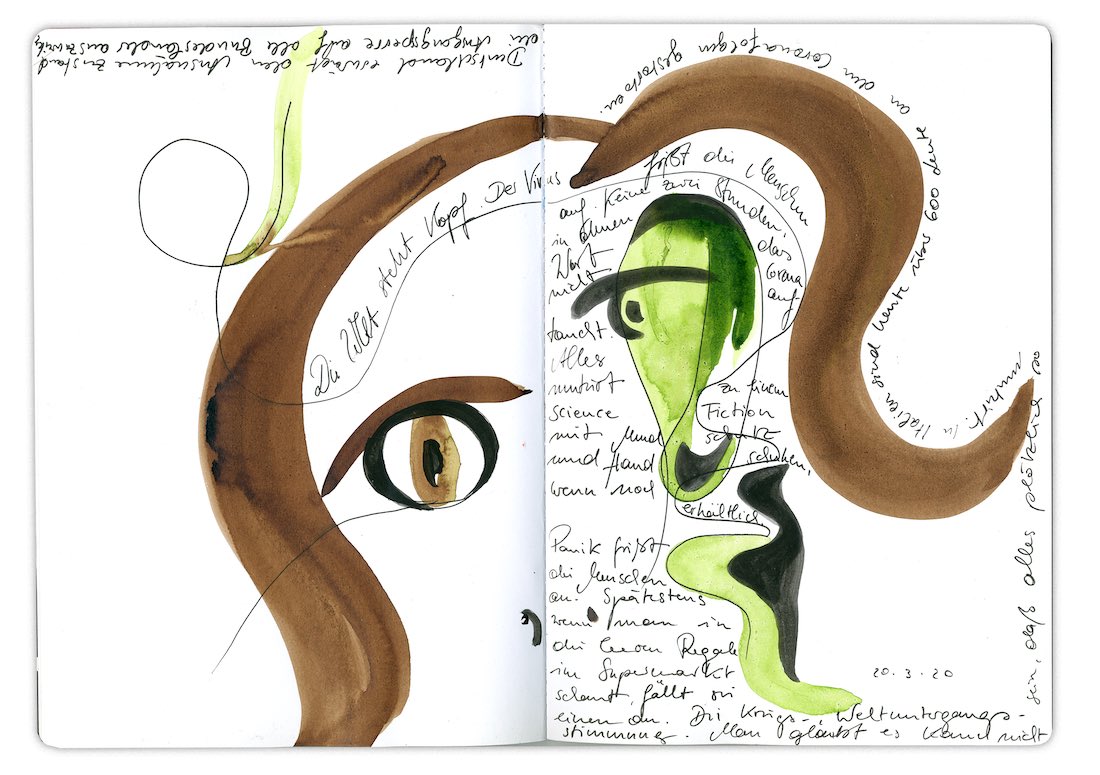 Deutschland erwägt den Ausnahmezustand
die Ausgangsperre auf alle Bundesländer
Die Welt steht Kopf. Der Virus frißt die Menschen
auf. Keine zwei Stunden,
in denen das
Wort Corona
nicht auf-
taucht.
Alles
mutiert zu einem
Science Fiction
mit Mundschutz
und Handschuhen,
wenn noch erhältlich.
Panik frißt
die Menschen
an. Spätestens
wenn man in
die leeren Regale
im Supermarkt
schaut, fällt sie
einen an. Die Kriegs-, Weltuntergangs-
stimmung. Man glaubt es kann nicht
sein, daß alles plötzlich so
umkippt. In Italien sind heute über 600 Leute an den Coronafolgen gestorben.
20.3.20